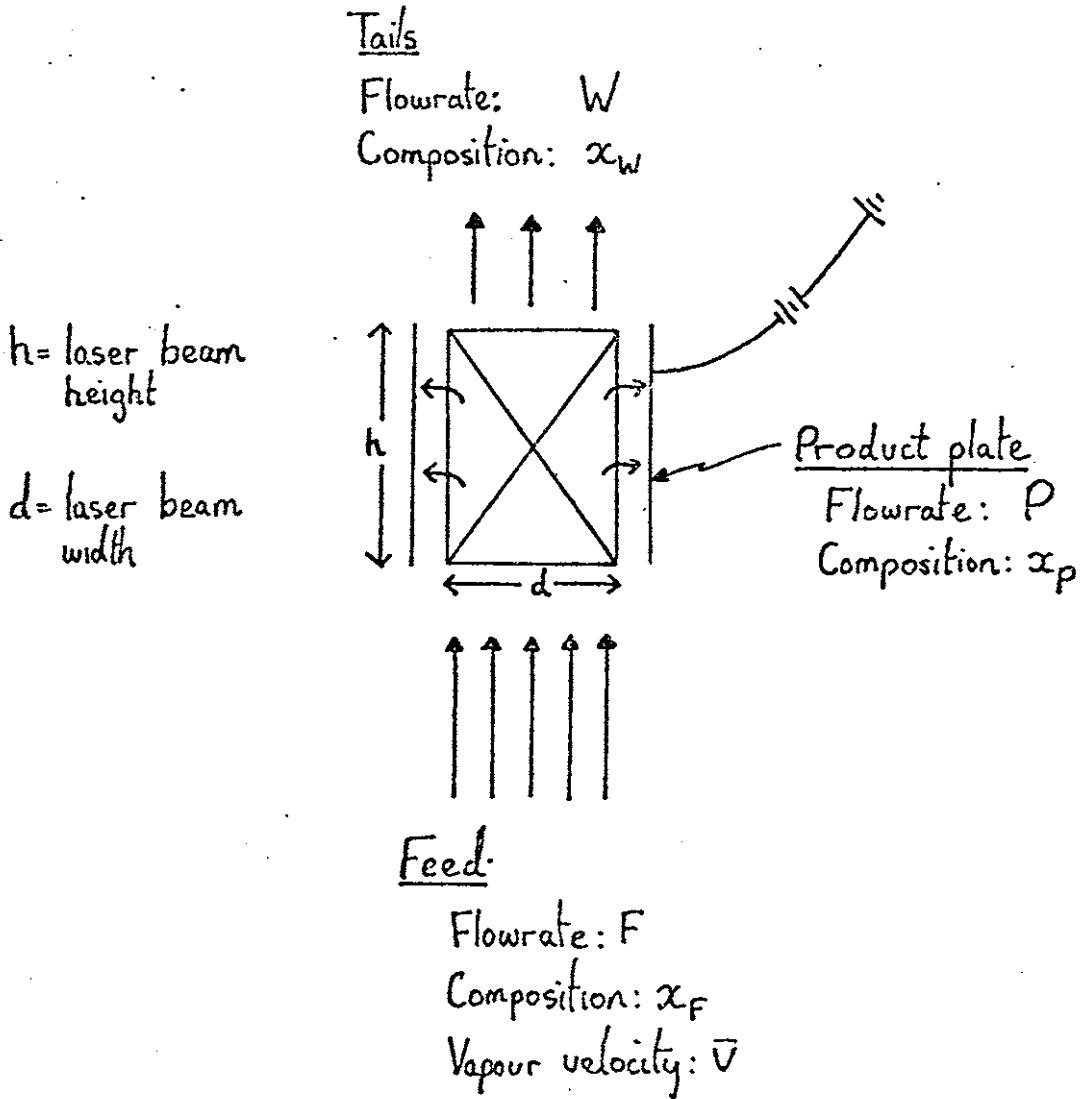 Tails
Flowrate: W
Composition: x_W
h= laser beam
height
h
d= laser beam
width
d
Product plate
Flowrate: P
Composition: x_P
Feed
Flowrate: F
Composition: x_F
Vapour velocity: v̄